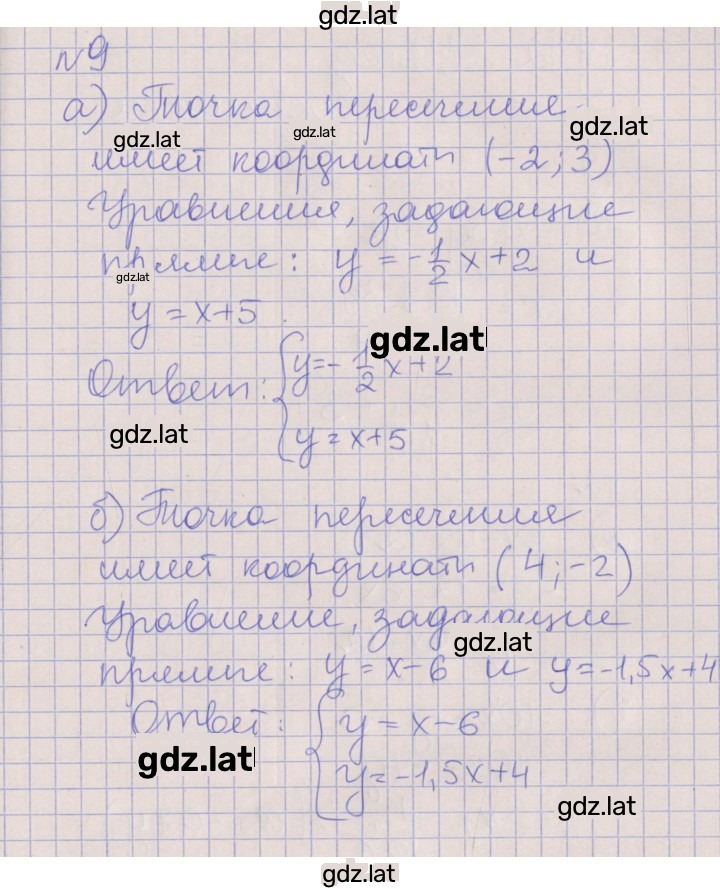 gdz.lat
№9
а) Точка пересечения
gdz.lat gdz.lat gdz.lat
имеет координаты (-2; 3)
Уравнения, задающие
прямые: y = -1/2 x + 2 и
gdz.lat
y = x+5
gdz.lat
Ответ: { y = -1/2 x + 2
y = x+5
gdz.lat
б) Точка пересечения
имеет координаты (4; -2)
Уравнение, задающие
gdz.lat
прямые: y = x-6 и y = -1,5x+4
Ответ: { y = x-6
gdz.lat
y = -1,5x+4
gdz.lat
gdz.lat